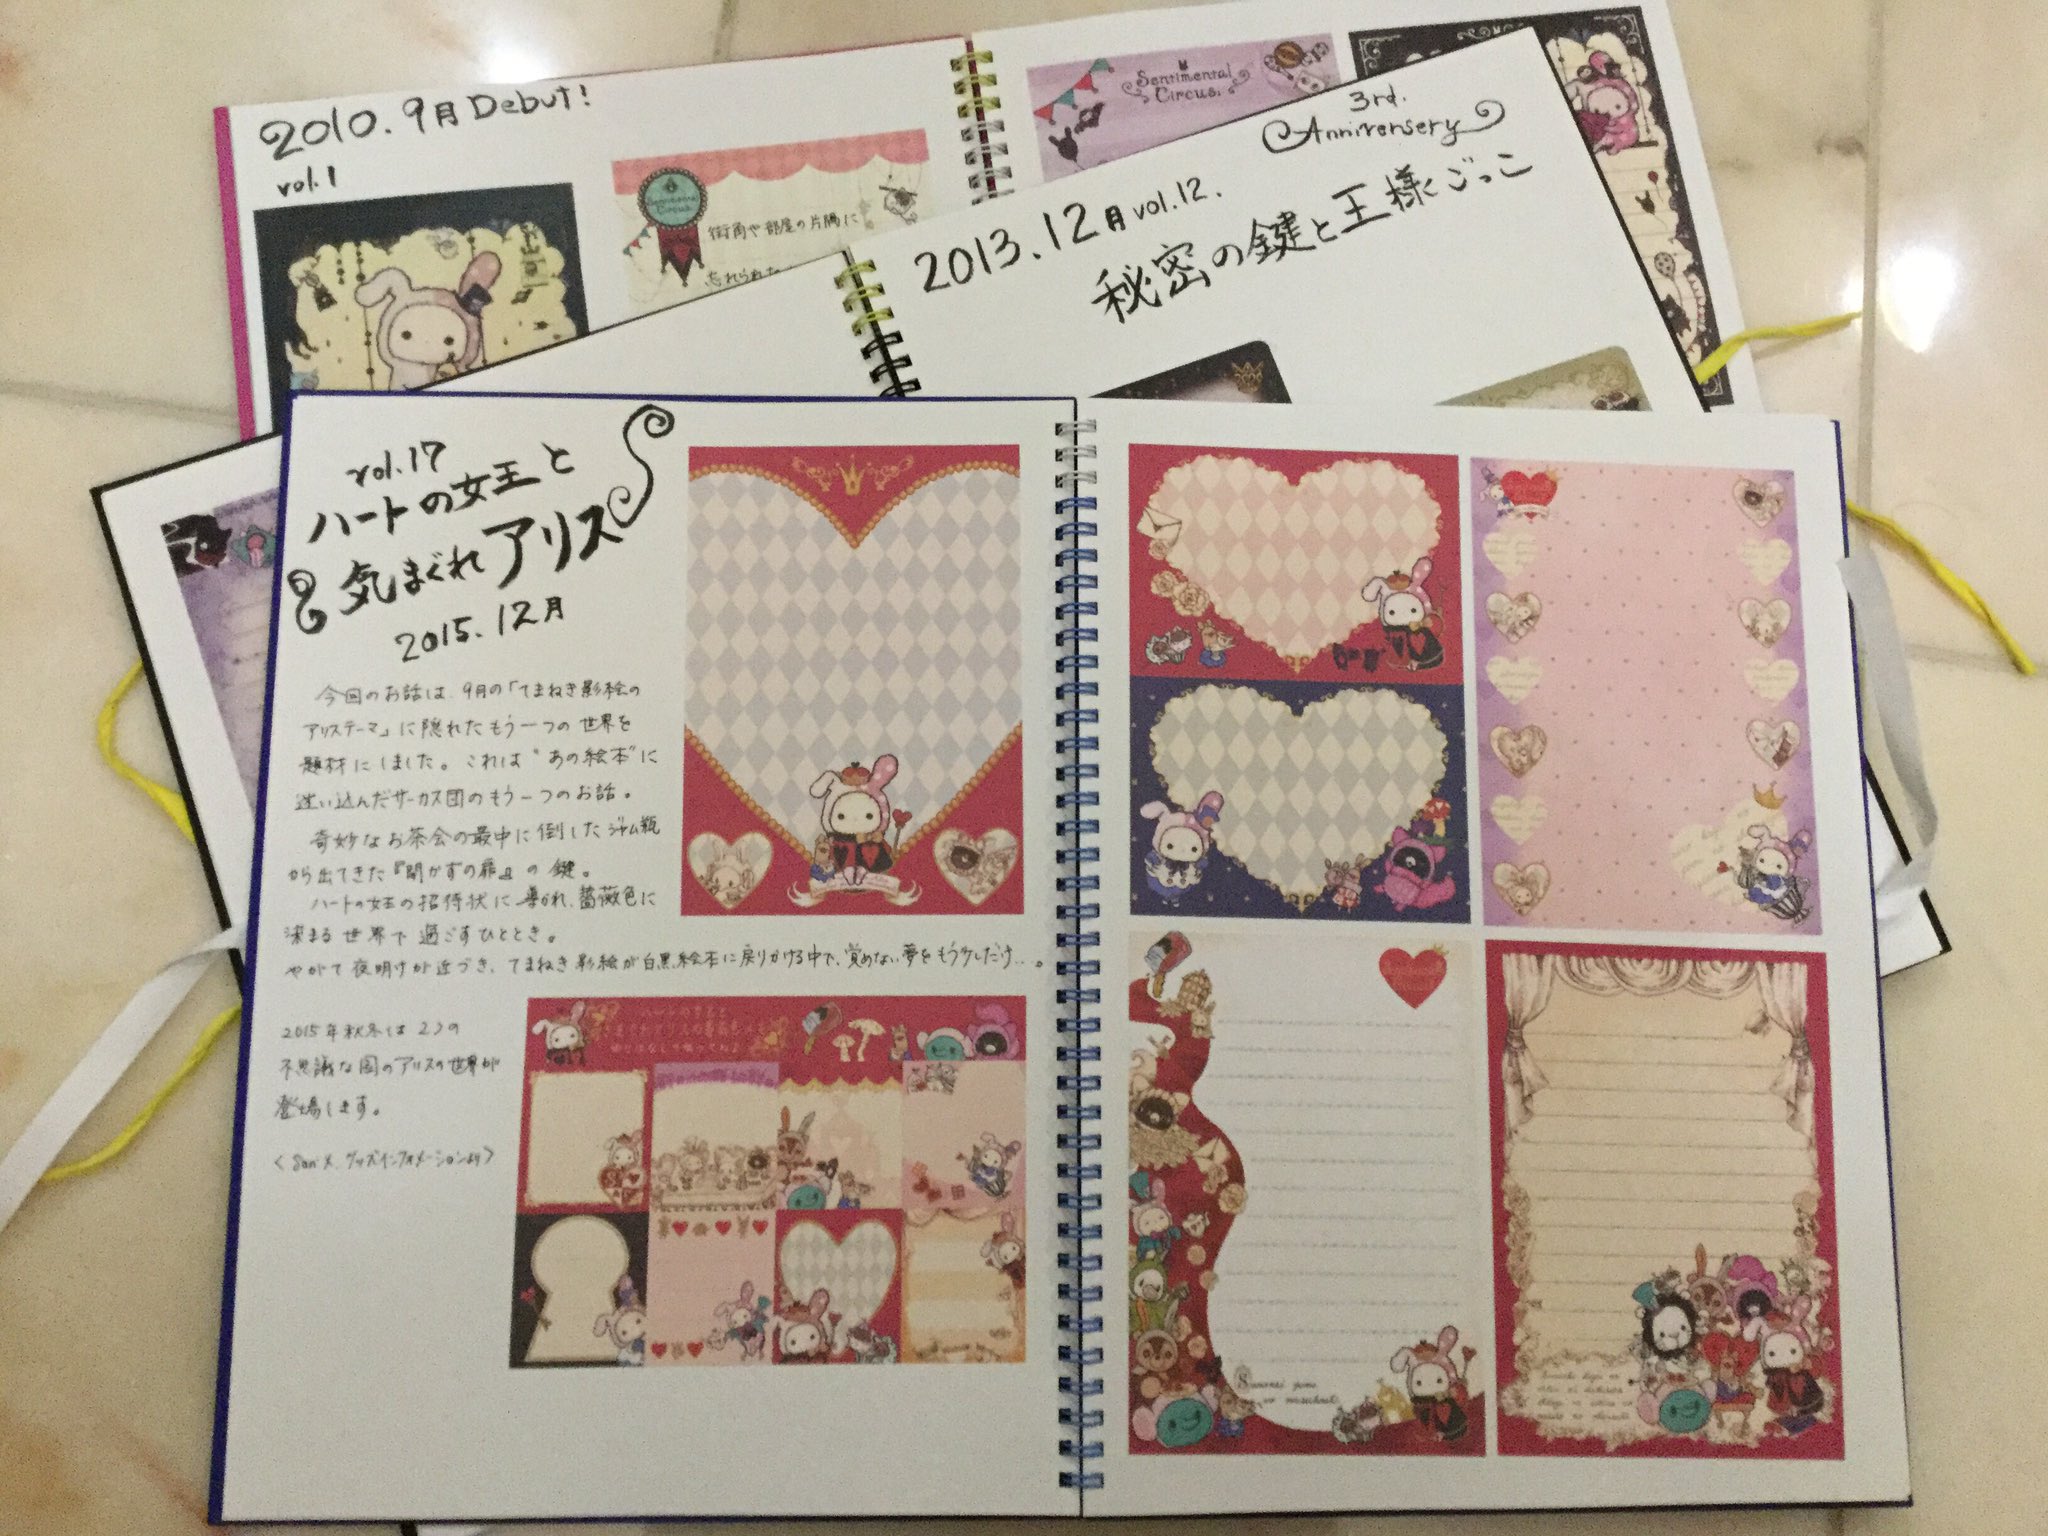 2010.9月 Debut!
vol.1
Sentimental
Circus.
街角や部屋の片隅に
忘れられた
Sentimental
Circus
3rd.
Anniversery
2013.12月 vol.12.
秘密の鍵と王様ごっこ
vol.17
ハートの女王と
気まぐれアリス
2015.12月
今回のお話は、9月の「てまねき影絵の
アリステーマ」に隠れたもう一つの世界を
題材にしました。これは"あの絵本"に
迷い込んだサーカス団のもう一つのお話。
奇妙なお茶会の最中に倒したジャム瓶
から出てきた『開かずの扉』の鍵。
ハートの女王の招待状に導かれ、薔薇色に
染まる世界で過ごすひととき。
やがて夜明けが近づき、てまねき影絵が白黒絵本に戻りかける中で、覚めない夢をもう少しだけ…。
2015年秋冬は2つの
不思議な国のアリスの世界が
登場します。
<San-X グッズインフォメーションより>